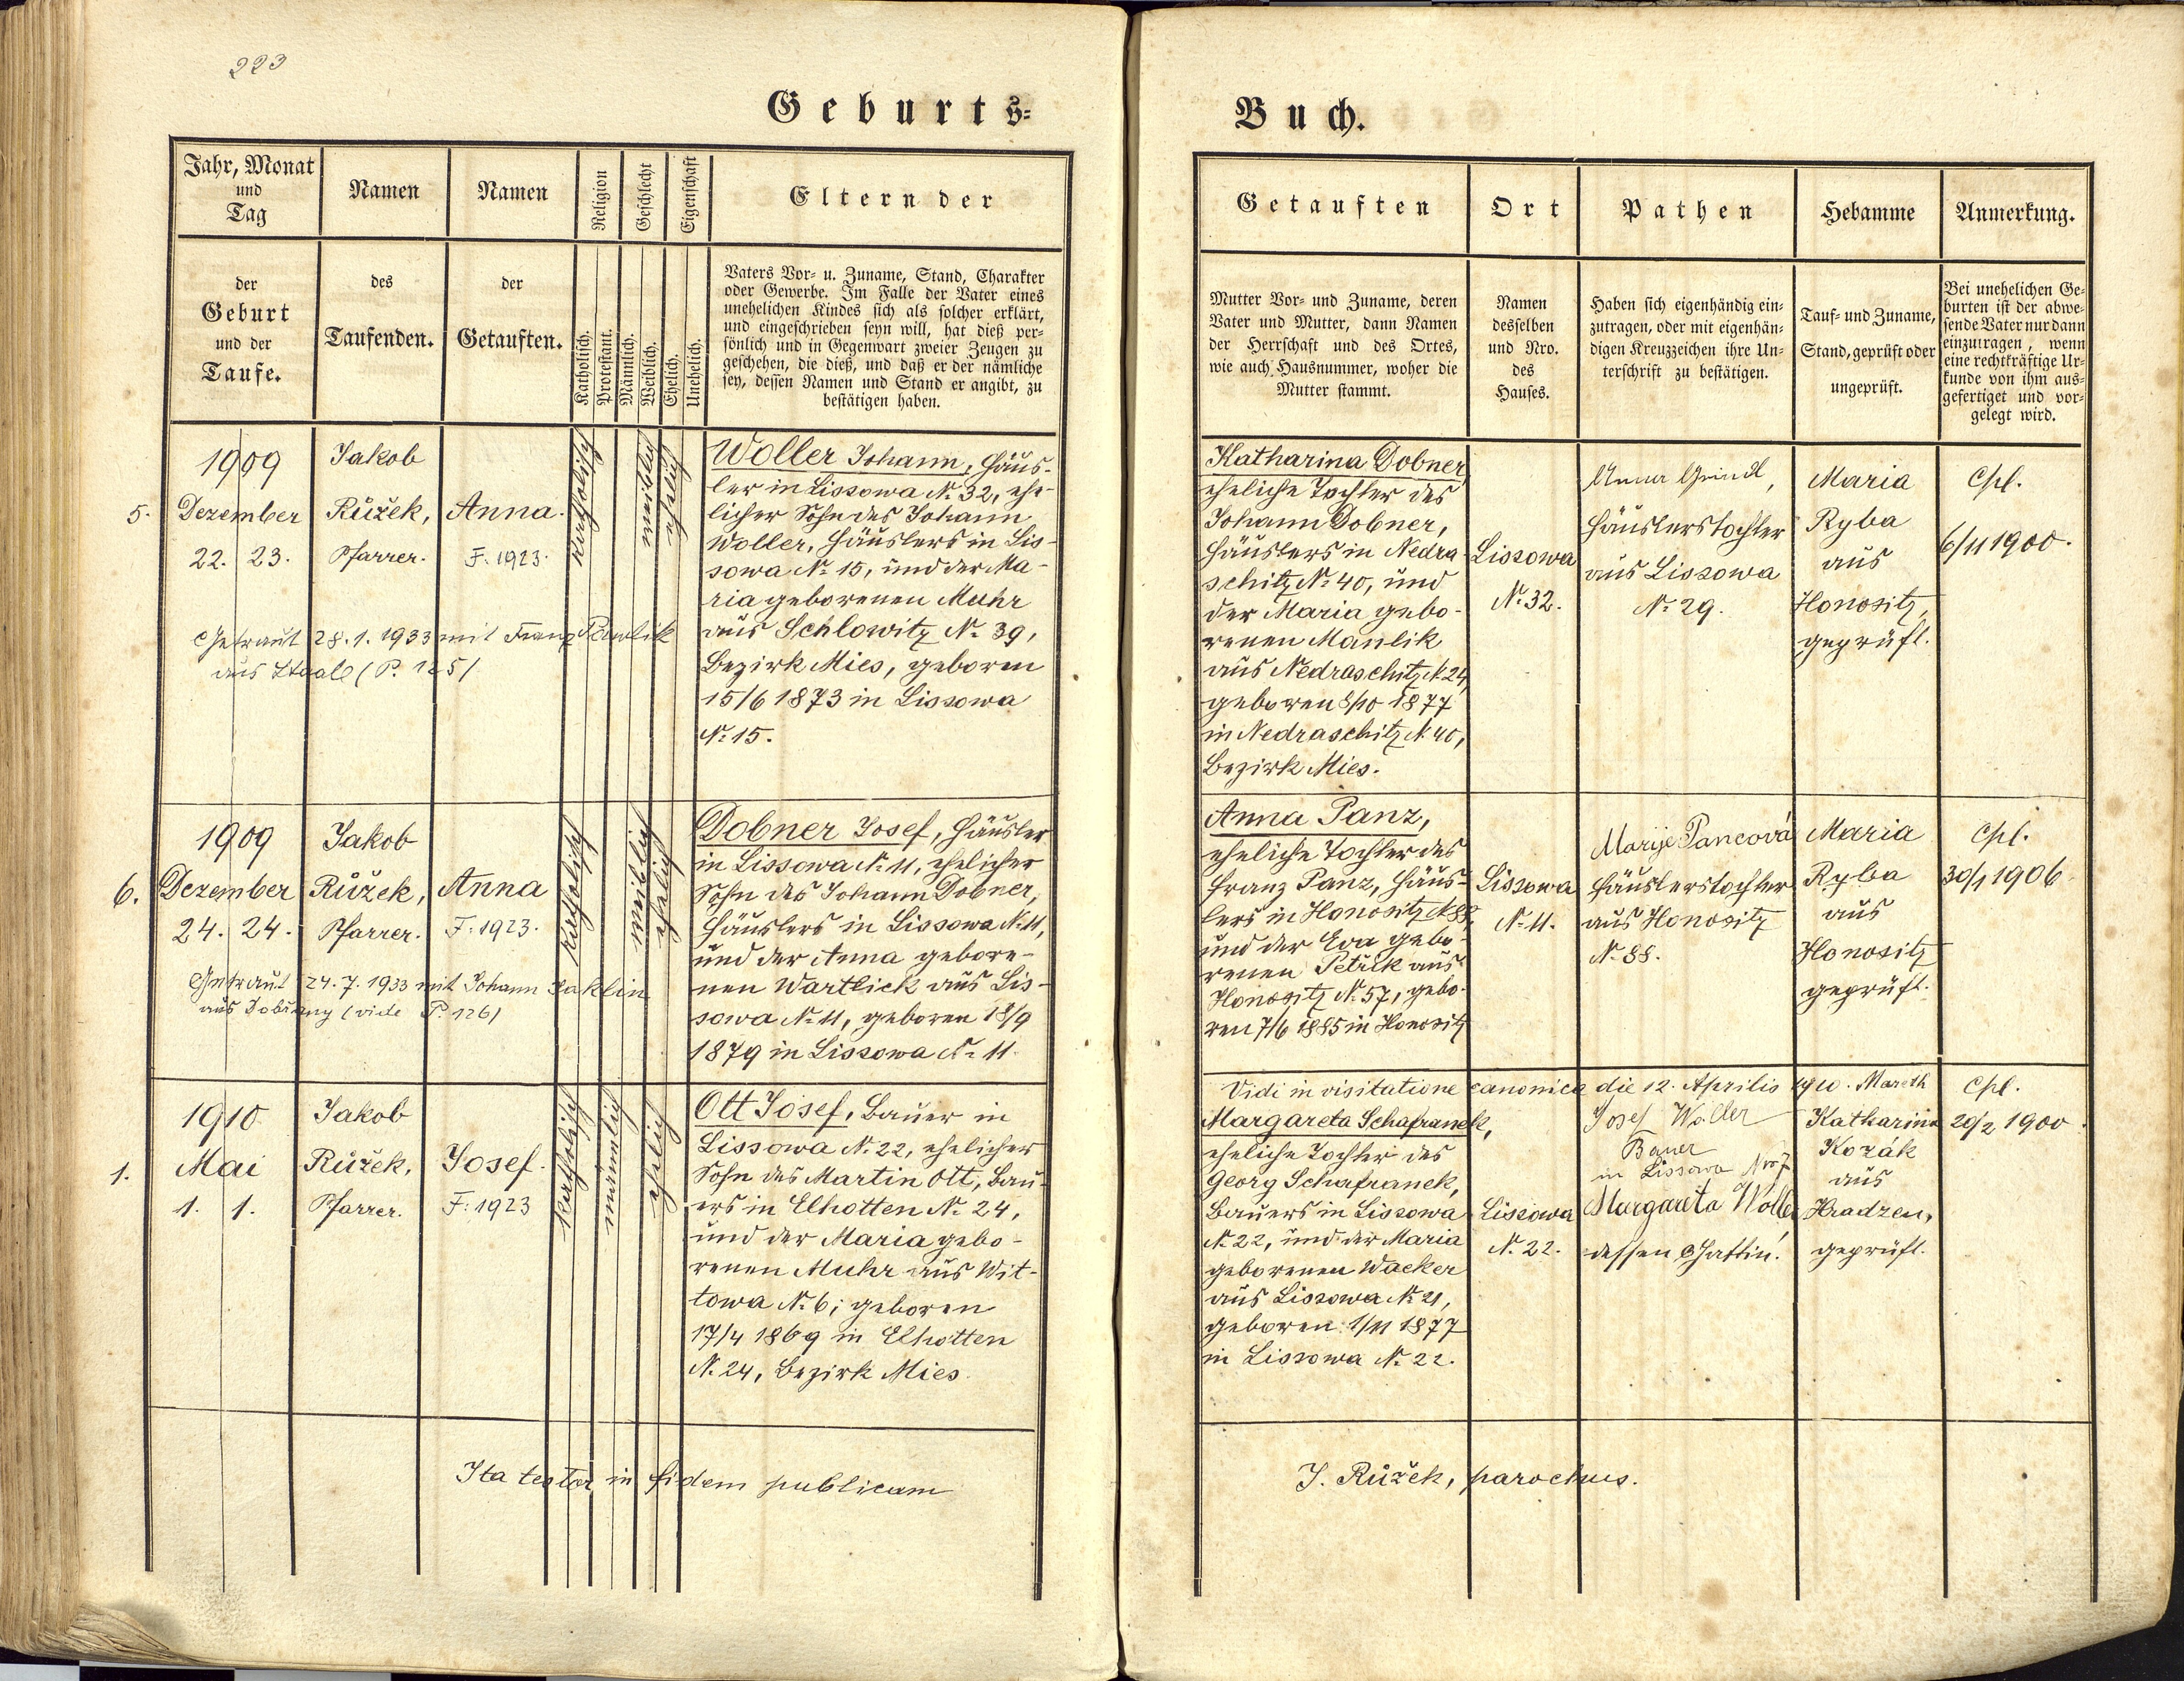 223
Geburts-
Jahr, Monat
und
Tag
Namen
Namen
Religion
Geschlecht
Eigenschaft
Eltern der
der
Geburt
und der
Taufe.
des
Taufenden.
der
Getauften.
Katholisch.
Protestant.
Männlich.
Weiblich.
Ehelich.
Unehelich.
Vaters Vor- u. Zuname, Stand, Charakter
oder Gewerbe. Im Falle der Vater eines
unehelichen Kindes sich als solcher erklärt,
und eingeschrieben seyn will, hat dieß per-
sönlich und in Gegenwart zweier Zeugen zu
geschehen, die dieß, und daß er der nämliche
sey, dessen Namen und Stand er angibt, zu
bestätigen haben.
5.
1909
Dezember
22. 23.
Jakob
Růžek,
Pfarrer.
Anna.
F. 1923.
katholisch
weiblich
ehelich
Woller Johann, Häus-
ler in Lissowa № 32, ehe-
licher Sohn des Johann
Woller, Häuslers in Lis-
sowa № 15, und der Ma-
ria geborenen Muhr
aus Schlowitz № 39,
Bezirk Mies, geboren
15/6 1873 in Lissowa
№ 15.
Getraut 28.1.1933 mit Franz Pawlik
aus Staab (P. 125)
6.
1909
Dezember
24. 24.
Jakob
Růžek,
Pfarrer.
Anna
F. 1923.
katholisch
weiblich
ehelich
Dobner Josef, Häusler
in Lissowa № 11, ehelicher
Sohn des Johann Dobner,
Häuslers in Lissowa № 11,
und der Anna gebore-
nen Wartlick aus Lis-
sowa № 11, geboren 18/9
1879 in Lissowa № 11.
Getraut 24.7.1933 mit Johann
aus (vide P. 126)
1.
1910
Mai
1. 1.
Jakob
Růžek,
Pfarrer.
Josef.
F. 1923
katholisch
männlich
ehelich
Ott Josef, Bauer in
Lissowa № 22, ehelicher
Sohn des Martin Ott, Bau-
ers in Elhotten № 24,
und der Maria gebo-
renen Muhr aus Wit-
towa № 6; geboren
17/4 1869 in Elhotten
№ 24, Bezirk Mies.
Ita testor in fidem publicam
Buch.
Getauften
Ort
Pathen
Hebamme
Anmerkung.
Mutter Vor- und Zuname, deren
Vater und Mutter, dann Namen
der Herrschaft und des Ortes,
wie auch Hausnummer, woher die
Mutter stammt.
Namen
desselben
und Nro.
des
Hauses.
Haben sich eigenhändig ein-
zutragen, oder mit eigenhän-
digen Kreuzzeichen ihre Un-
terschrift zu bestätigen.
Tauf- und Zuname,
Stand, geprüft oder
ungeprüft.
Bei unehelichen Ge-
burten ist der abwe-
sende Vater nur dann
einzutragen, wenn
eine rechtkräftige Ur-
kunde von ihm aus-
gefertiget und vor-
gelegt wird.
Katharina Dobner
eheliche Tochter des
Johann Dobner,
Häuslers in Nedra-
schitz № 40, und
der Maria gebo-
renen Manlik
aus Nedraschitz № 24,
geboren 8/10 1877
in Nedraschitz № 40,
Bezirk Mies.
Lissowa
№ 32.
Anna Grindl,
Häuslerstochter
aus Lissowa
№ 29.
Maria
Ryba
aus
Honositz,
geprüft.
Cpl.
6/11 1900.
Anna Panz,
eheliche Tochter des
Franz Panz, Häus-
lers in Honositz № 88,
und der Eva gebo-
renen Petřik aus
Honositz № 57, gebo-
ren 7/6 1885 in Honositz
Lissowa
№ 11.
Marije Pancová
Häuslerstochter
aus Honositz
№ 88.
Maria
Ryba
aus
Honositz
geprüft.
Cpl.
30/1 1906
Vidi in visitatione canonica die 12. Aprilis 1910. Mareth
Margareta Schafranek,
eheliche Tochter des
Georg Schafranek,
Bauers in Lissowa
№ 22, und der Maria
geborenen Wacker
aus Lissowa № 21,
geboren 1/11 1877
in Lissowa № 22.
Lissowa
№ 22.
Josef Woller
Bauer
in Lissowa Nro 7
Margareta Woller
dessen Gattin.
Katharina
Kozák
aus
Hradzen,
geprüft.
Cpl.
20/2 1900.
J. Růžek, parochus.